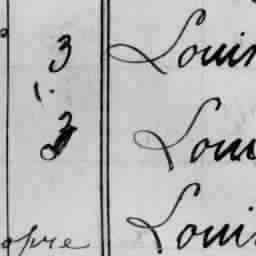 3 Louis
3 Lou
opre Loui